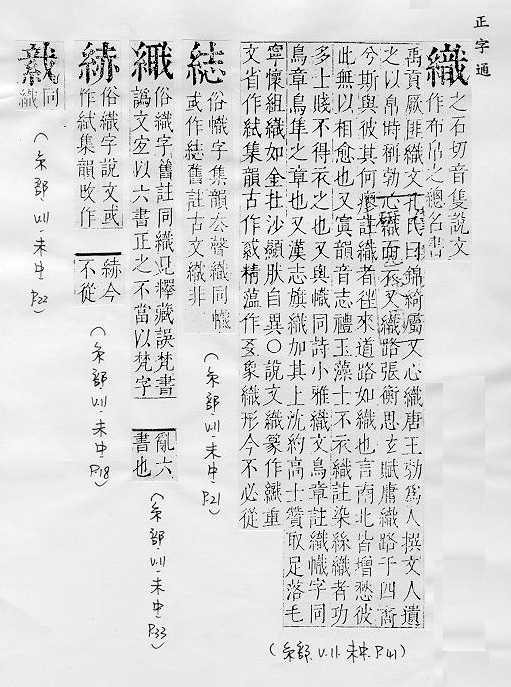 正字通
織
之石切音隻說文
作布帛之總名書
禹貢厥匪織文孔氏曰錦綺屬又心織唐王勃為人撰文人遺
之以帛時稱勃心織而衣又織路張衡思玄賦庸織路于四裔
兮斯與彼其何瘳註織者往來道路如織也言南北皆增愁彼
此無以相愈也又寘韻音志禮玉藻士不衣織註染絲織者功
多上賤不得衣之也又與幟同詩小雅織文鳥章註織幟字同
鳥章鳥隼之章也又漢志旗織加其上沈約高士贊取足落毛
寧懷組織如金沙顯膚自異○說文織篆作重
文省作集韻古作精薀作象織形今不必從
(糸部 V.11-未中 P.41)
俗幟字集韻去聲織同幟
或作舊註古文織非
(糸部 V.11-未中 P.21)
俗織字舊註同織見釋藏誤梵書
譌文宜以六書正之不當以梵字
亂六
書也
(糸部 V.11-未中 P.33)
俗織字說文或
作集韻改作
今
不從
(糸部 V.11-未中 P.18)
同
織
(糸部 V.11-未中 P.22)